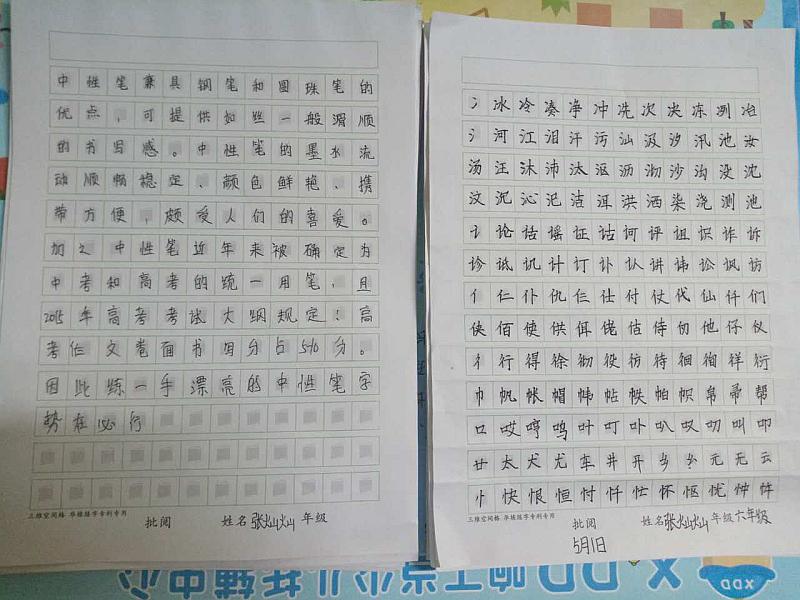 中性笔兼具钢笔和圆珠笔的
优点，可提供如丝一般润顺
的书写感。中性笔的墨水流
动顺畅稳定、颜色鲜艳、携
带方便，颇受人们的喜爱。
加之中性笔近年来被确定为
中考和高考的统一用笔，且
2015年高考考试大纲规定！高
考作文卷面书写分占5-10分。
因此练一手漂亮的中性笔字
势在必行
三维空间格 华楼练字专利专用
批阅 姓名 张灿灿 年级
冫冰冷凑净冲冼次决冻冽冶
氵河江泪汗污汕汲汐汛池汝
汤汪沫沛汰沤沥沏沙沟没沈
汶沉沁汜洁洱洪洒染浇测池
讠论话谣证诂诃评诅识诈诉
诊诋讥计订讣认讲讳讼讽访
亻仁仆仇仨仕付仗代仙仟们
侠佰使供佴佬佶侍仞他仔仪
彳行得徐彻役彷待徊徇祥衍
巾帆帐帽帏帖帙帕帜帛帚帮
口哎哼鸣叶叮叶叭叹叨叫叩
廾太犬尤车井开乡元无云
忄快恨恒忖忏忙怀怄忧忡
三维空间格 华楼练字专利专用
批阅 姓名 张灿灿 年级 六年级
5月1日